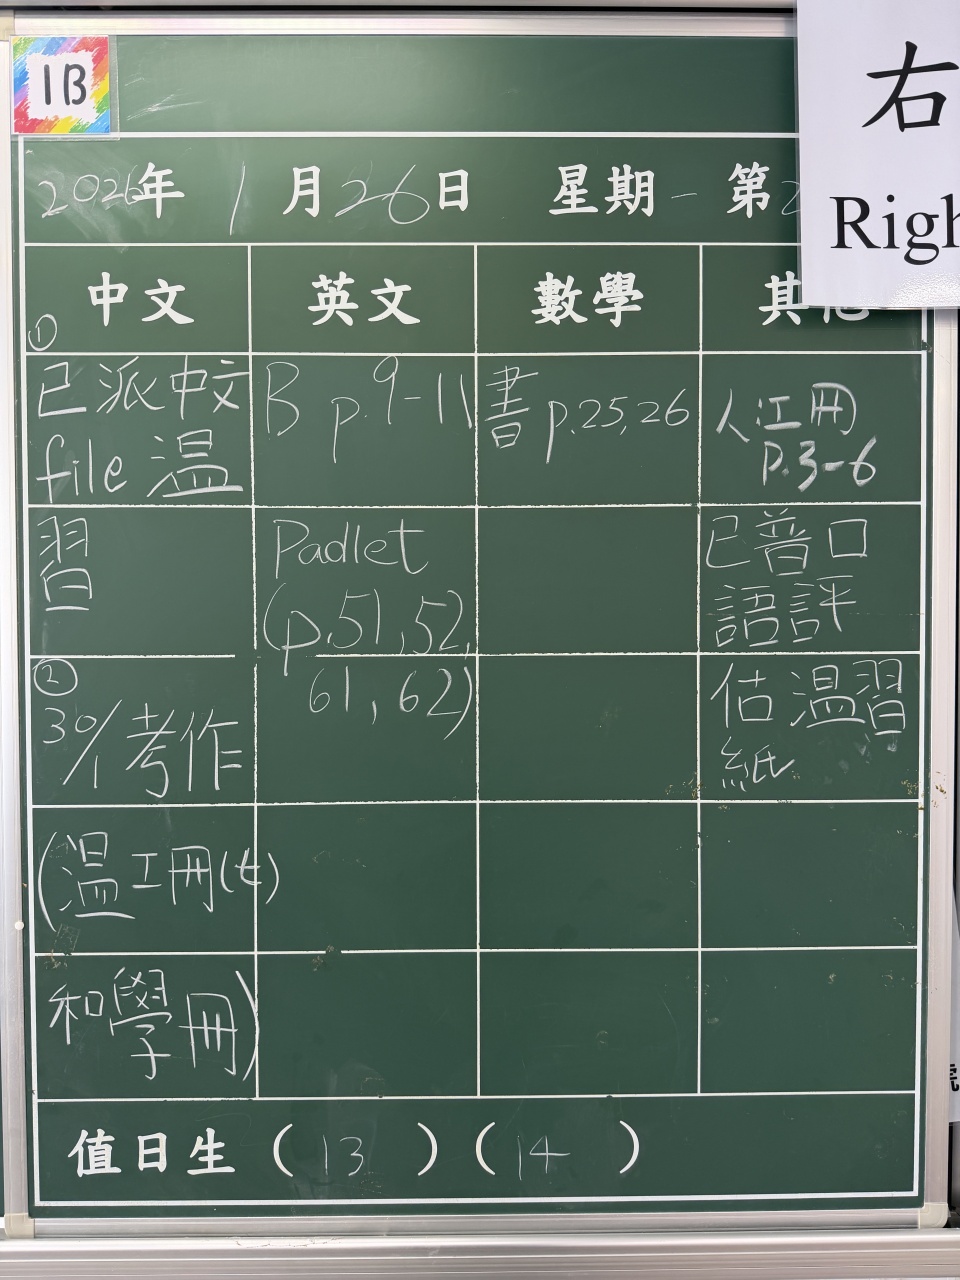 1B
右
Righ
2026年 1月26日 星期一 第2
中文 英文 數學 其他
①
已派中文
file 温
習
②
30/1 考作
(温工冊(七)
和學冊)
B p.9-11
Padlet
(p.51,52,
61,62)
書 p.25,26
人工冊
P.3-6
已普口
語評
估温習
紙
值日生 (13) (14)